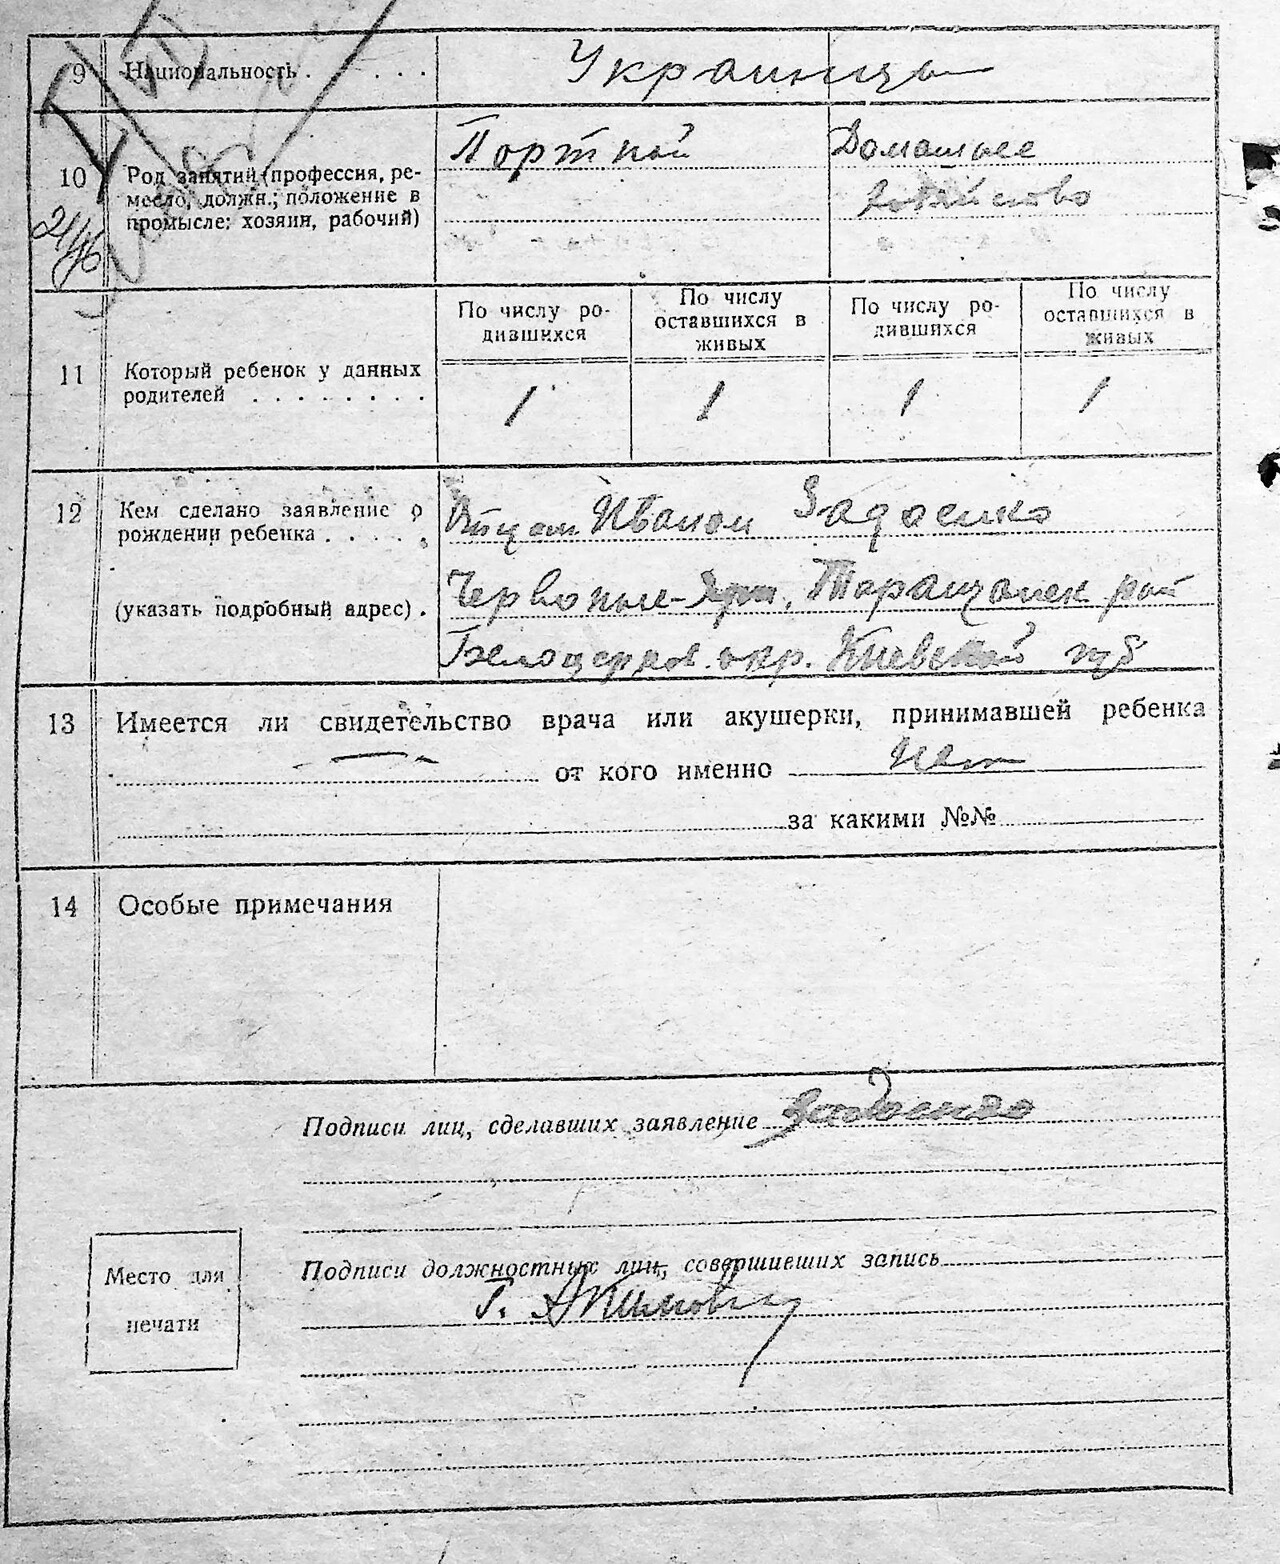 9 Национальность . . . . . Украинцы
10 Род занятий (профессия, ре-
месло, должн.; положение в
промысле: хозяин, рабочий)
Портной
Домашнее
хозяйство
11 Который ребенок у данных
родителей . . . . . . . .
По числу ро-
дившихся
По числу
оставшихся в
живых
По числу ро-
дившихся
По числу
оставшихся в
живых
1 1 1 1
12 Кем сделано заявление о
рождении ребенка . . . . .
(указать подробный адрес) .
Отцом Иваном
Таращанск рай
Белоцерков. окр. Киевской губ
13 Имеется ли свидетельство врача или акушерки, принимавшей ребенка
— от кого именно Нет
за какими №№
14 Особые примечания
Подписи лиц, сделавших заявление
Подписи должностных лиц, совершивших запись
Место для
печати